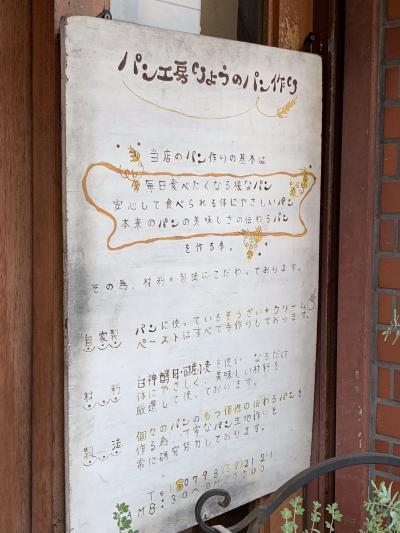 パン工房りょうのパン作り
当店のパン作りの基本は
毎日食べたくなる様なパン
安心して食べられる体にやさしいパン
本来のパンの美味しさの伝わるパン
を作る事。
その為、材料・製法にこだわっております。
自家製
パンに使っているそうざい・クリーム
ペーストはすべて手作りしております。
材料
白神酵母・国産小麦を使い なるだけ
体にやさしく、美味しい材料を
厳選して使っております。
製法
個々のパンのもつ個性の伝わるパンを
作る為、丁寧なパン生地作りを
常に研究努力しております。
Tel 0798(37)2121
AM8:30